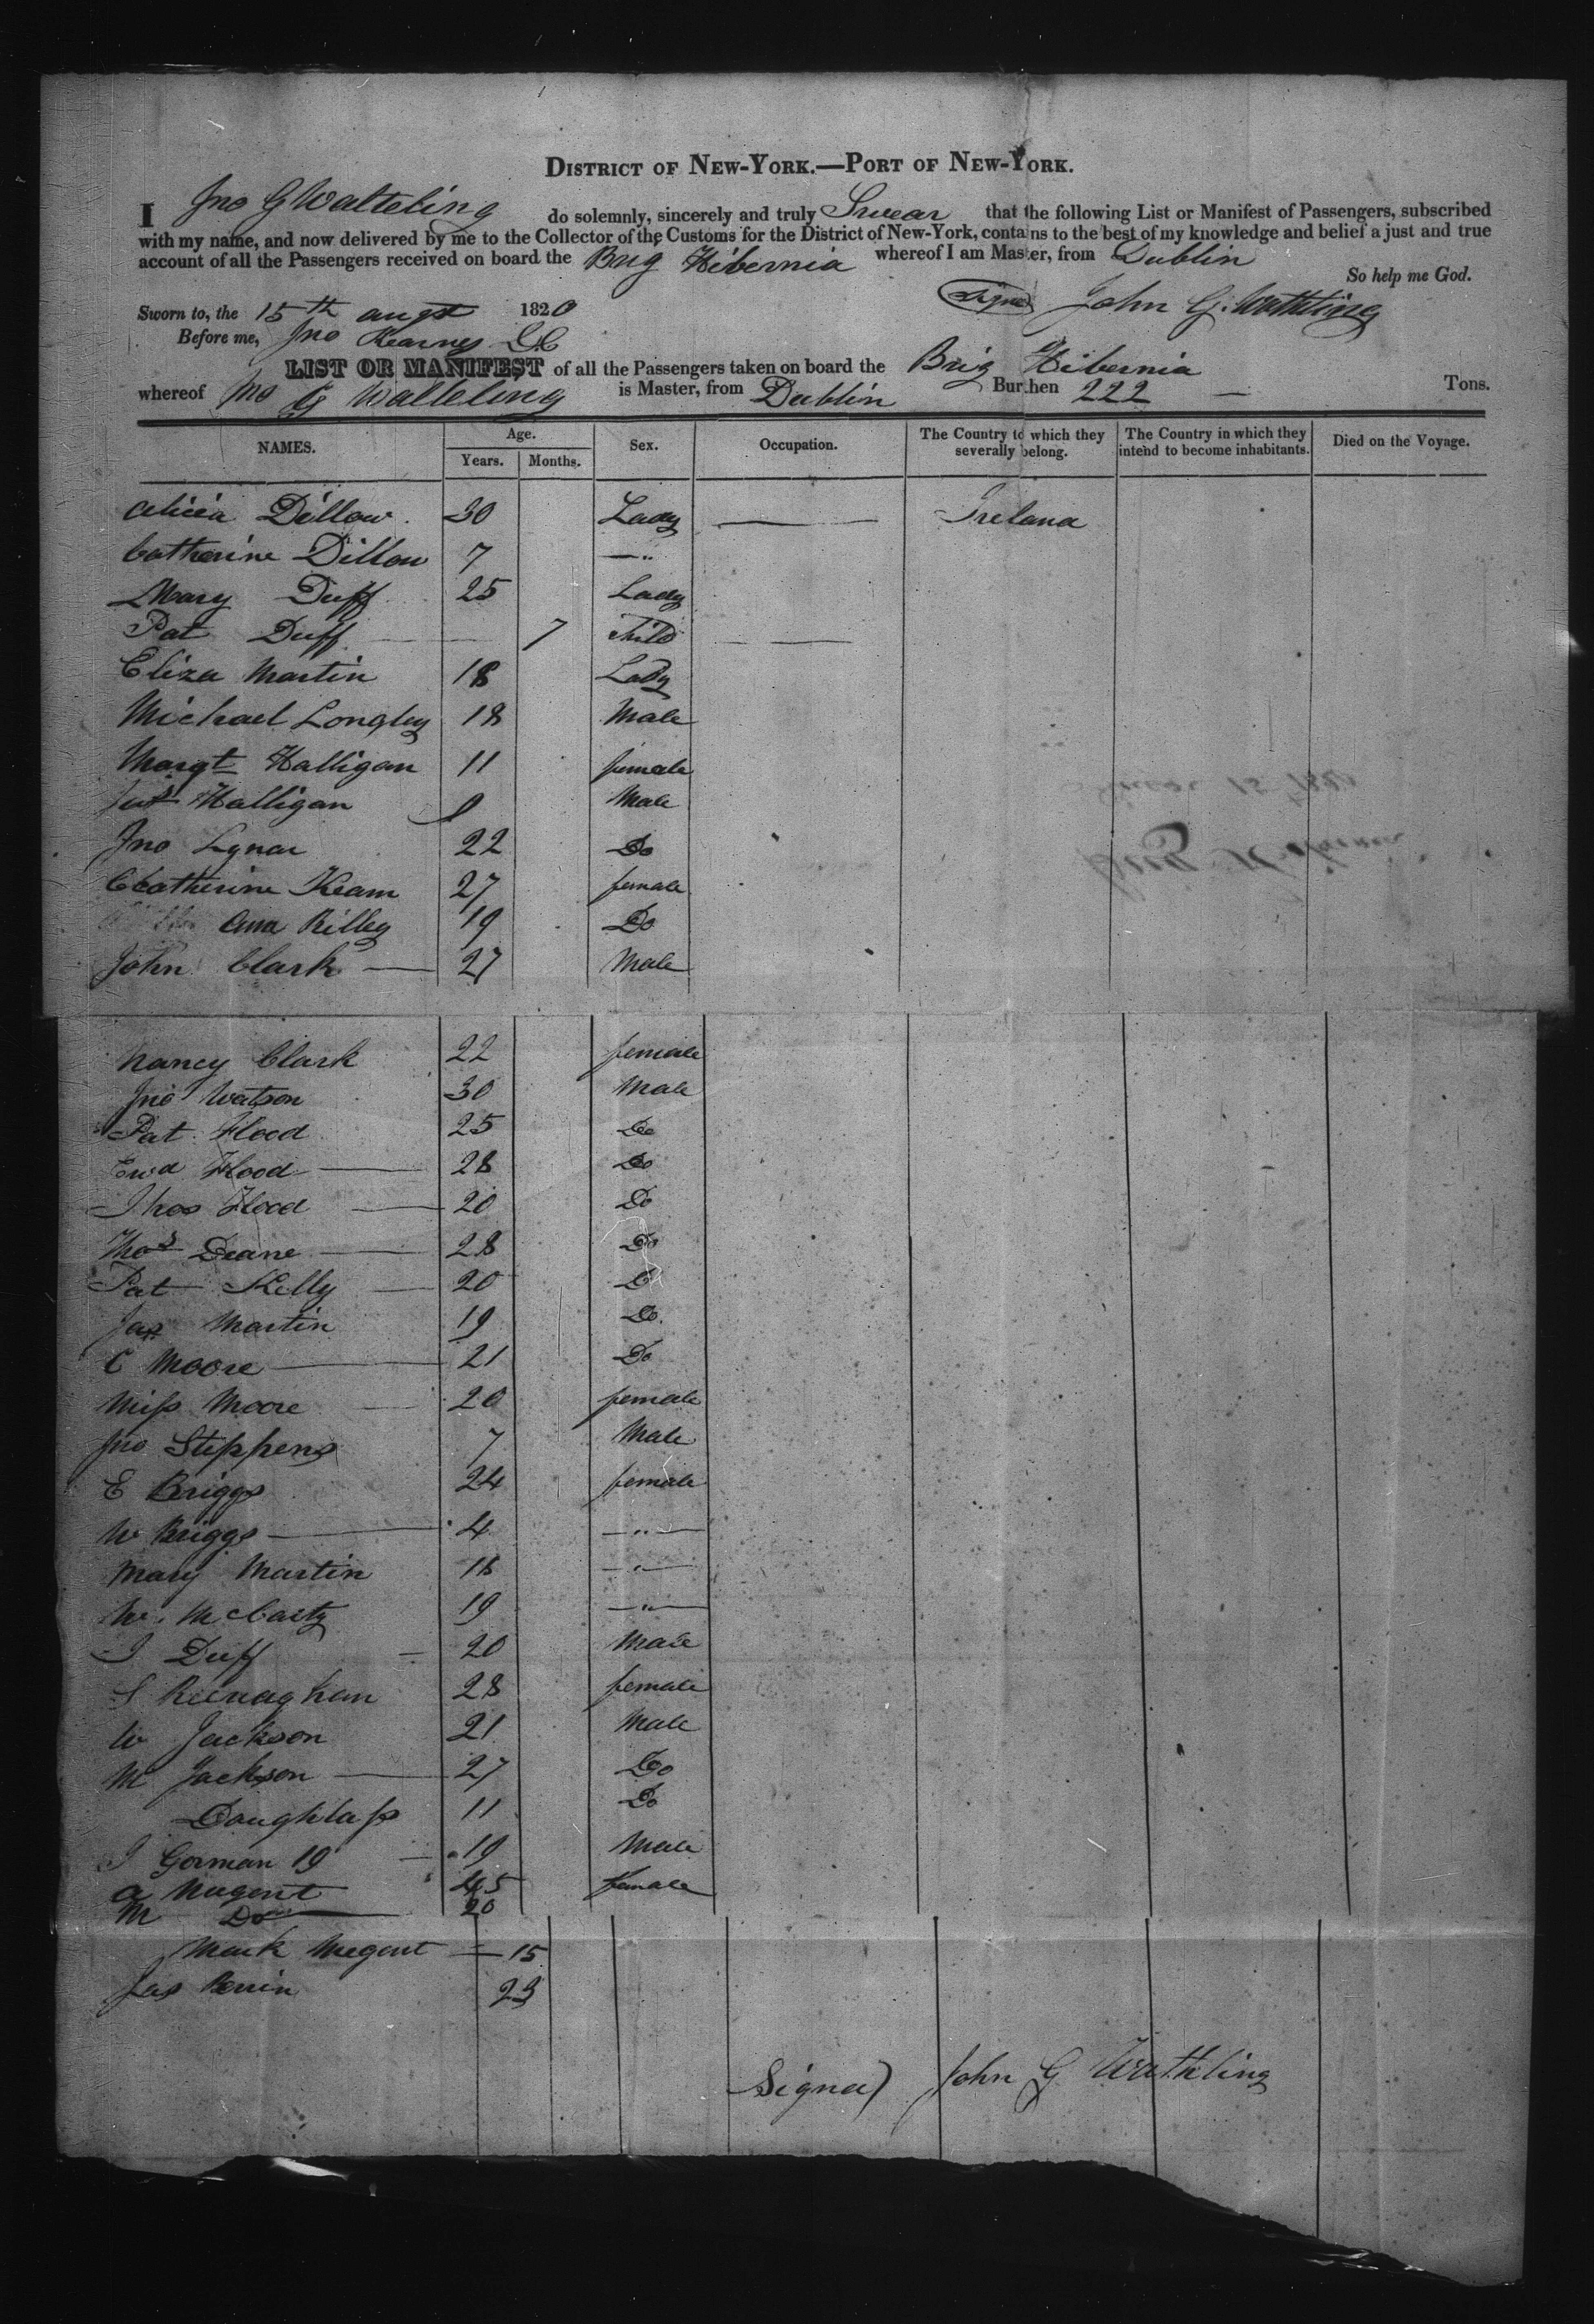 DISTRICT OF NEW-YORK.—PORT OF NEW-YORK.
I Jno G Watteling do solemnly, sincerely and truly Swear that the following List or Manifest of Passengers, subscribed
with my name, and now delivered by me to the Collector of the Customs for the District of New-York, contains to the best of my knowledge and belief a just and true
account of all the Passengers received on board the Brig Hibernia whereof I am Master, from Dublin
So help me God.
Sworn to, the 15th augst 1820 Signed John G. Wathling
Before me, Jno Kearney
LIST OR MANIFEST of all the Passengers taken on board the Brig Hibernia
whereof Jno G Watteling is Master, from Dublin Burthen 222 — Tons.
NAMES. Age. Years. Months. Sex. Occupation. The Country to which they severally belong. The Country in which they intend to become inhabitants. Died on the Voyage.
Alicia Dillon 30 Lady — Ireland
Catherine Dillon 7 — "
Mary Duff 25 Lady
Pat Duff — 7 Child —
Eliza Martin 18 Lady
Michael Longley 18 Male
Margt Halligan 11 female
Halligan 9 Male
Jno Lynar 22 Do
Catherine Keam 27 female
Ann Rilley 19 Do
John Clark — 27 Male
Nancy Clark 22 female
Jno Watson 30 Male
Pat Flood 25 Do
Ewd Flood — 28 Do
Thos Flood — 20 Do
Thos Deane — 28 Do
Pat Kelly — 20 Do
Jas Martin 19 Do.
C Moore — 21 Do
Miss Moore — 20 female
Jno Stephens 7 Male
E Briggs 24 female
W Briggs — 4 — " —
Mary Martin 18 — " —
W. McCarty 19 — " —
J Duff — 20 Male
S Reenaghan 28 female
W Jackson 21 Male
M Jackson — 27 Do
Doughlass 11 Do
J Gorman 19 — 19 Male
A Nugent 45 female
M Do — 20
Mark Megent — 15
Jas Berrin 23
Signed) John G Wathling